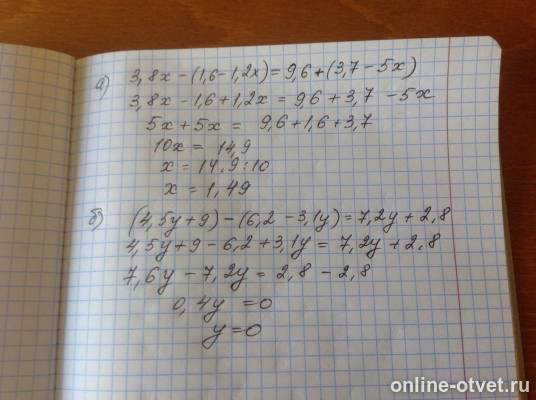 а) 3,8x - (1,6 - 1,2x) = 9,6 + (3,7 - 5x)
3,8x - 1,6 + 1,2x = 9,6 + 3,7 - 5x
5x + 5x = 9,6 + 1,6 + 3,7
10x = 14,9
x = 14,9 : 10
x = 1,49
б) (4,5y + 9) - (6,2 - 3,1y) = 7,2y + 2,8
4,5y + 9 - 6,2 + 3,1y = 7,2y + 2,8
7,6y - 7,2y = 2,8 - 2,8
0,4y = 0
y = 0
online-otvet.ru